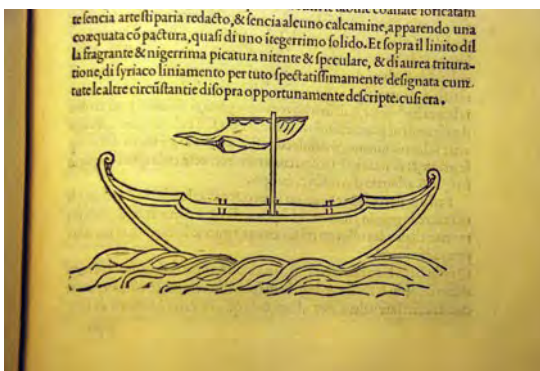 tabule
te ſencia arte ſtiparia redacto,&ſencia alcuno calcamine,apparendo una
coæquata cõ pactura,quaſi di uno ĩtegerrimo ſolido.Et ſopra il linito dil
la fragrante & nigerrima picatura nitente & ſpeculare, & di aurea tritura-
tione,di ſyriaco liniamento per tuto ſpectatiſſimamente deſignata cum.
tute le altre circũſtantie di ſopra opportunamente deſcripte.cuſi era.